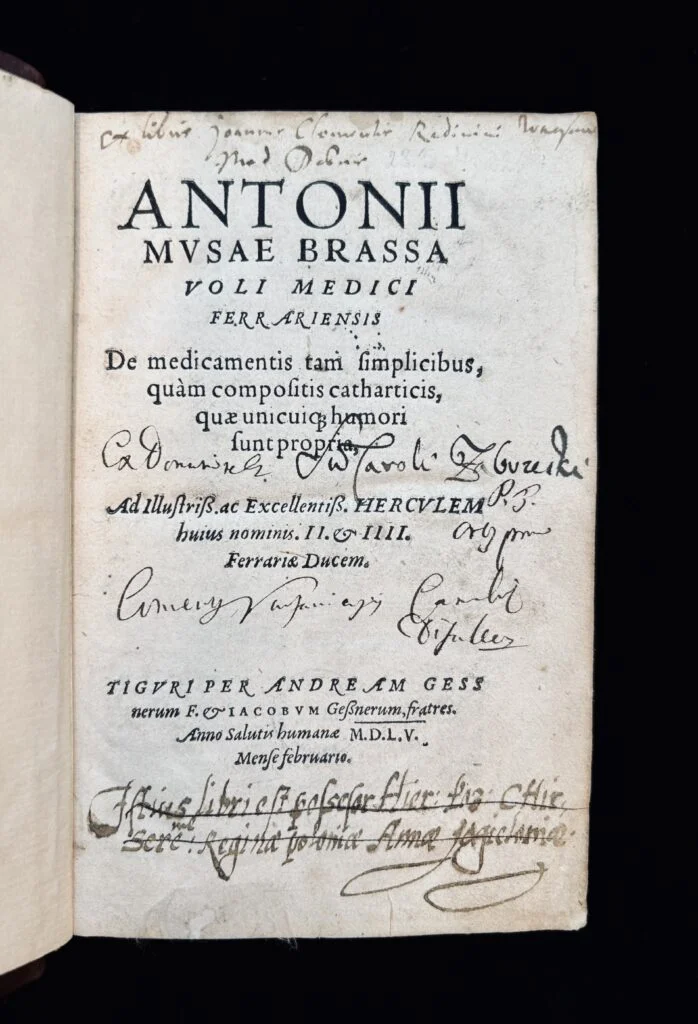 ex libris Joannis Clementis
Med Doctoris
ANTONII
MVSAE BRASSA
VOLI MEDICI
FERRARIENSIS
De medicamentis tam simplicibus,
quàm compositis catharticis,
quæ unicuiq; humori
sunt propria,
Caroli
Ad Illustriß. ac Excellentiß. HERCVLEM
huius nominis. II. & IIII.
Ferrariæ Ducem.
TIGVRI PER ANDREAM GESS
nerum F. & IACOBVM Geßnerum, fratres.
Anno Salutis humanæ M.D.LV.
Mense februario.
Istius libri est possesor Hier: CHir:
Sere: Reginæ poloniæ Annæ Jagieloniæ